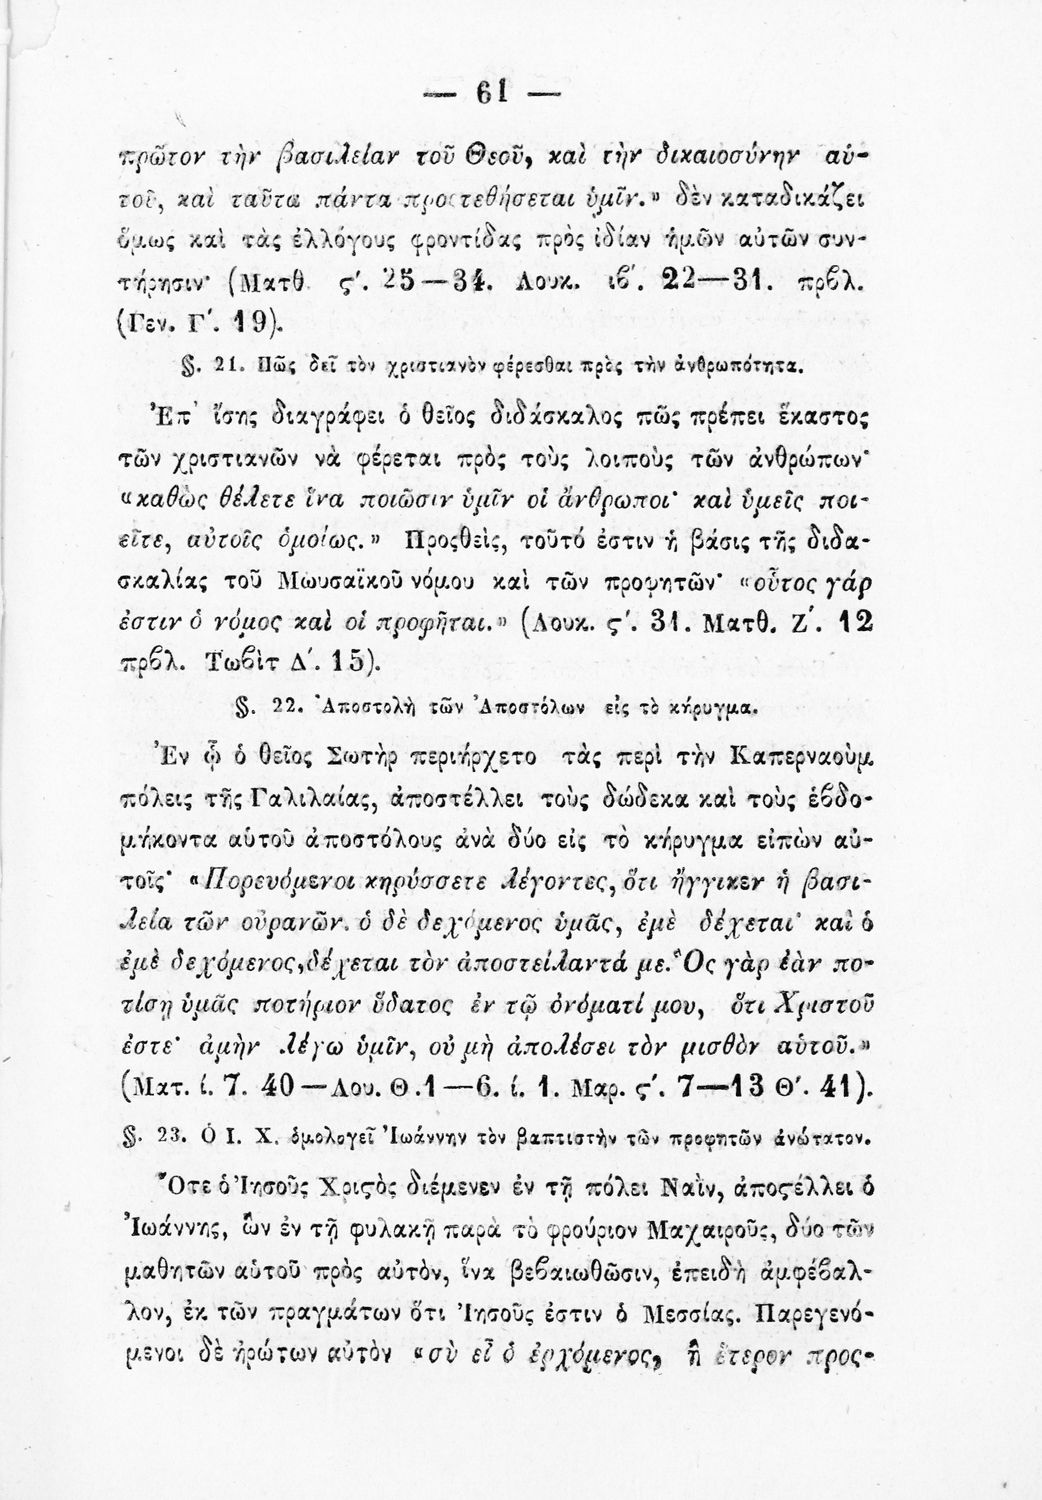 — 61 —
πρῶτον τὴν βασιλείαν τοῦ Θεοῦ, καὶ τὴν δικαιοσύνην αὑ-
τοῦ, καὶ ταῦτα πάντα προςτεθήσεται ὑμῖν.» δὲν καταδικάζει
ὅμως καὶ τὰς ἐλλόγους φροντίδας πρὸς ἰδίαν ἡμῶν αὐτῶν συν-
τήρησιν· (Ματθ ϛ΄. 25—34. Λουκ. ιϐ΄. 22—31. πρϐλ.
(Γεν. Γ΄. 19).
§. 21. Πῶς δεῖ τὸν χριστιανὸν φέρεσθαι πρὸς τὴν ἀνθρωπότητα.
Ἐπ᾿ ἴσης διαγράφει ὁ θεῖος διδάσκαλος πῶς πρέπει ἕκαστος
τῶν χριστιανῶν νὰ φέρεται πρὸς τοὺς λοιποὺς τῶν ἀνθρώπων·
«καθὼς θέλετε ἵνα ποιῶσιν ὑμῖν οἱ ἄνθρωποι· καὶ ὑμεῖς ποι-
εῖτε, αὐτοῖς ὁμοίως.» Προςθεὶς, τοῦτό ἐστιν ἡ βάσις τῆς διδα-
σκαλίας τοῦ Μωυσαϊκοῦ νόμου καὶ τῶν προφητῶν· «οὗτος γάρ
ἐστιν ὁ νόμος καὶ οἱ προφῆται.» (Λουκ. ϛ΄. 31. Ματθ. Ζ΄. 12
πρϐλ. Τωϐὶτ Δ΄. 15).
§. 22. Ἀποστολὴ τῶν Ἀποστόλων εἰς τὸ κήρυγμα.
Ἐν ᾧ ὁ θεῖος Σωτὴρ περιήρχετο τὰς περὶ τὴν Καπερναοὺμ
πόλεις τῆς Γαλιλαίας, ἀποστέλλει τοὺς δώδεκα καὶ τοὺς ἑϐδο-
μήκοντα αὑτοῦ ἀποστόλους ἀνὰ δύο εἰς τὸ κήρυγμα εἰπὼν αὐ-
τοῖς· «Πορευόμενοι κηρύσσετε λέγοντες, ὅτι ἤγγικεν ἡ βασι-
λεία τῶν οὐρανῶν. ὁ δὲ δεχόμενος ὑμᾶς, ἐμὲ δέχεται· καὶ ὁ
ἐμὲ δεχόμενος, δέχεται τὸν ἀποστείλαντά με. Ὃς γὰρ ἐὰν πο-
τίσῃ ὑμᾶς ποτήριον ὕδατος ἐν τῷ ὀνόματί μου, ὅτι Χριστοῦ
ἐστε· ἀμὴν λέγω ὑμῖν, οὐ μὴ ἀπολέσει τὸν μισθὸν αὑτοῦ.»
(Ματ. ί. 7. 40—Λου. Θ.1—6. ί. 1. Μαρ. ϛ΄. 7—13 Θ΄. 41).
§. 23. Ὁ Ι. Χ. ὁμολογεῖ Ἰωάννην τὸν βαπτιστὴν τῶν προφητῶν ἀνώτατον.
Ὅτε ὁ Ἰησοῦς Χριϛὸς διέμενεν ἐν τῇ πόλει Ναῒν, ἀποϛέλλει ὁ
Ἰωάννης, ὢν ἐν τῇ φυλακῇ παρὰ τὸ φρούριον Μαχαιροῦς, δύο τῶν
μαθητῶν αὑτοῦ πρὸς αὐτὸν, ἵνα βεϐαιωθῶσιν, ἐπειδὴ ἀμφέϐαλ-
λον, ἐκ τῶν πραγμάτων ὅτι Ἰησοῦς ἐστιν ὁ Μεσσίας. Παρεγενό-
μενοι δὲ ἠρώτων αὐτὸν «σὺ εἶ ὁ ἐρχόμενος, ἢ ἕτερον προς-